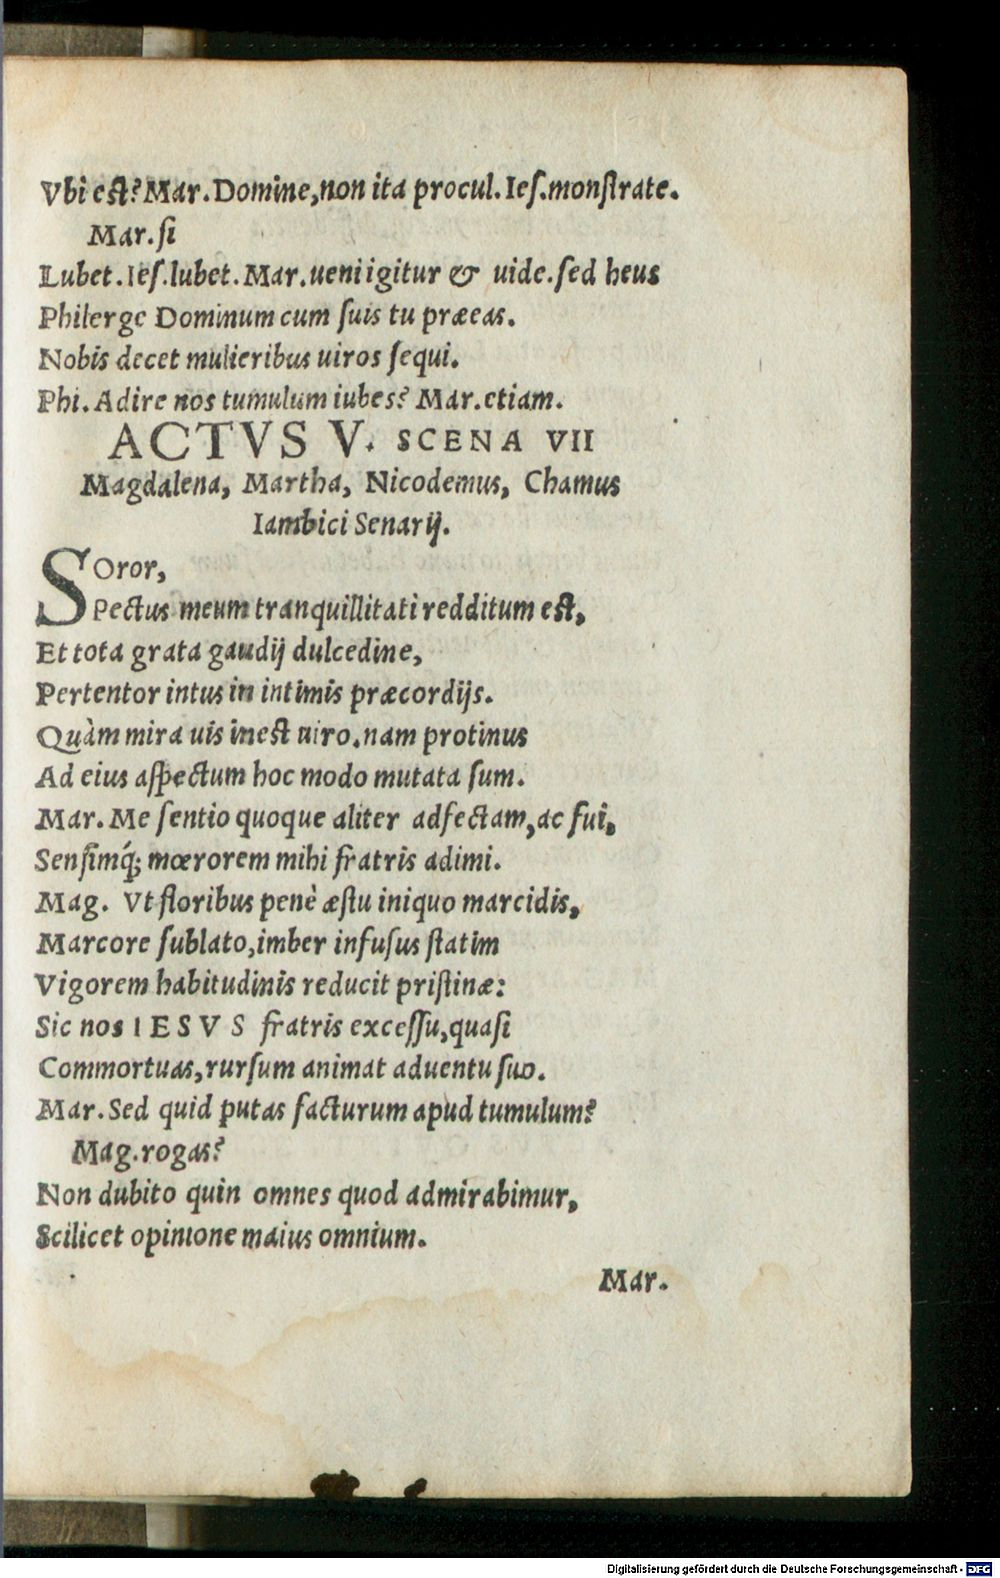 Vbi est? Mar. Domine, non ita procul. Ies. monstrate.
Mar. si
Lubet. Ies. lubet. Mar. ueni igitur & uide. sed heus
Philerge Dominum cum suis tu præeas.
Nobis decet mulieribus uiros sequi.
Phi. Adire nos tumulum iubes? Mar. etiam.
ACTVS V. SCENA VII
Magdalena, Martha, Nicodemus, Chamus
Iambici Senarij.
SOror,
Pectus meum tranquillitati redditum est,
Et tota grata gaudij dulcedine,
Pertentor intus in intimis præcordijs.
Quàm mira uis inest uiro. nam protinus
Ad eius aspectum hoc modo mutata sum.
Mar. Me sentio quoque aliter adfectam, ac fui,
Sensimq́; mœrorem mihi fratris adimi.
Mag. Vt floribus penè æstu iniquo marcidis,
Marcore sublato, imber infusus statim
Vigorem habitudinis reducit pristinæ:
Sic nos IESVS fratris excessu, quasi
Commortuas, rursum animat aduentu suo.
Mar. Sed quid putas facturum apud tumulum?
Mag. rogas?
Non dubito quin omnes quod admirabimur,
Scilicet opinione maius omnium.
Mar.
Digitalisierung gefördert durch die Deutsche Forschungsgemeinschaft - DFG